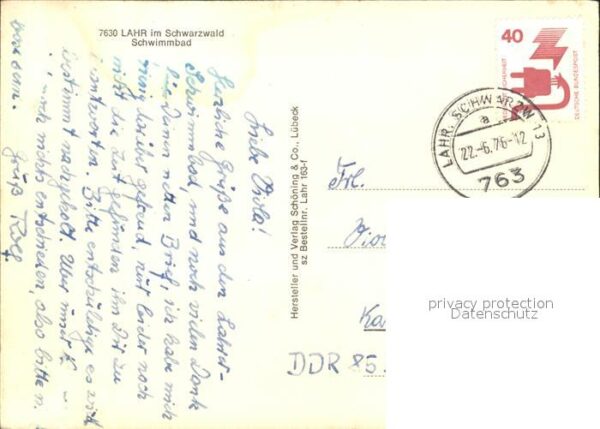 7630 LAHR im Schwarzwald
Schwimmbad
Liebe Viola!
Herzliche Grüße aus dem Lahrer-
Schwimmbad, und noch vielen Dank
für Deinen netten Brief, ich habe mich
riesig darüber gefreut, nur leider noch
nicht die Zeit gefunden ihn Dir zu
beantworten. Bitte entschuldige es wird
bestimmt nachgeholt. Über unser
noch nichts entschieden, also bitte
Gruß Rolf
Hersteller und Verlag Schöning & Co., Lübeck
sz Bestellnr. Lahr 163-f
40
DEUTSCHE BUNDESPOST
LAHR, SCHWARZW 13
a
22.-6.76-12
763
Frl.
Vio
Ka
DDR 85.
privacy protection
Datenschutz